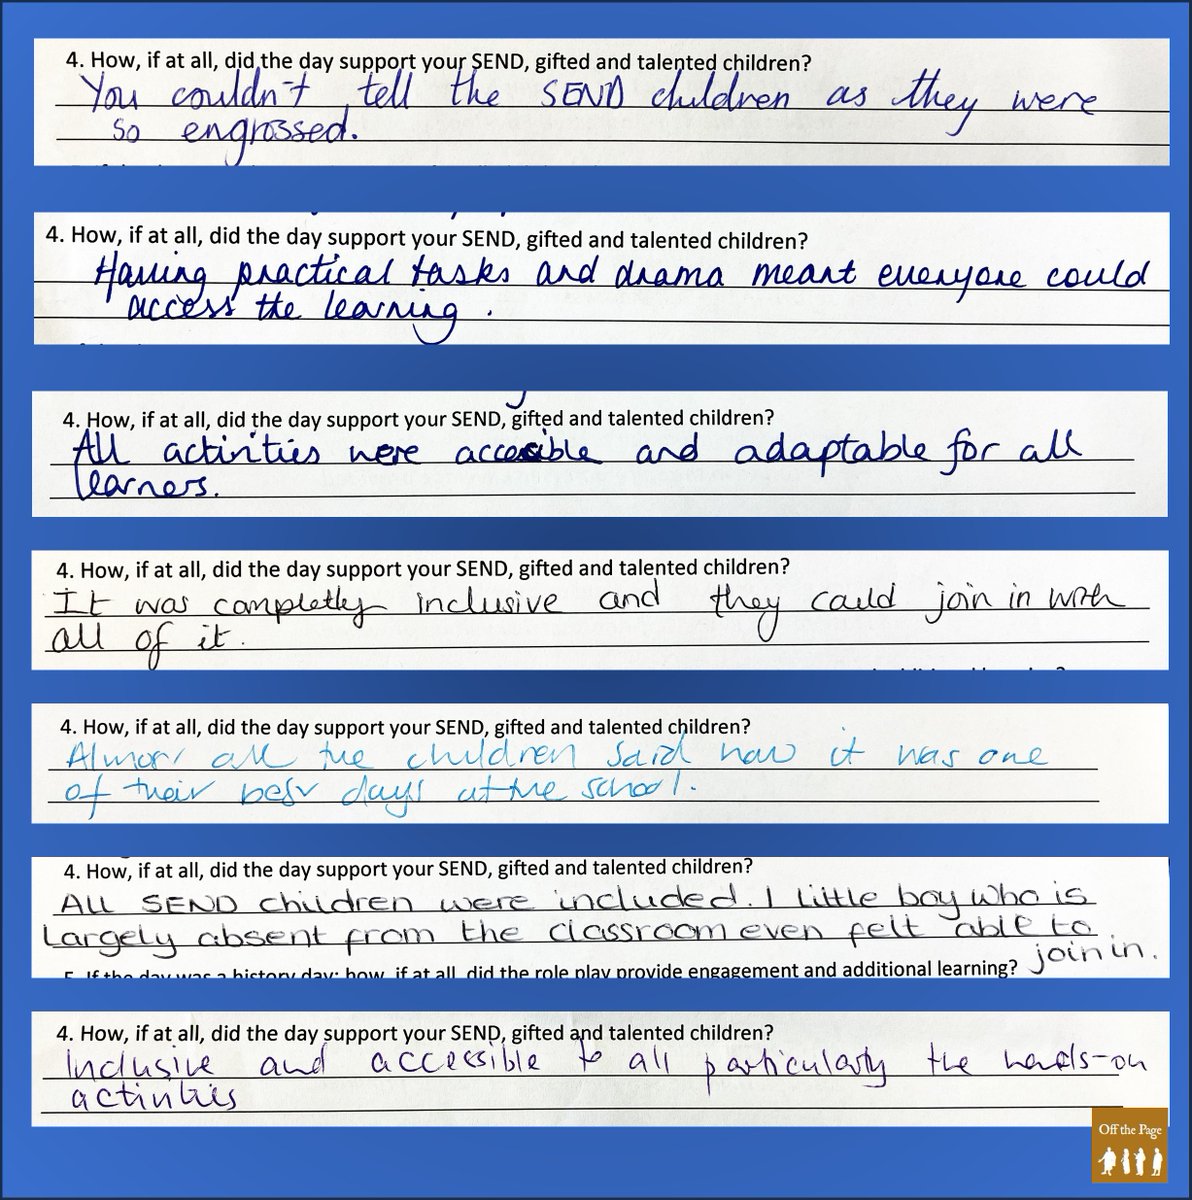 4. How, if at all, did the day support your SEND, gifted and talented children?
You couldn't tell the SEND children as they were
so engrossed.
4. How, if at all, did the day support your SEND, gifted and talented children?
Having practical tasks and drama meant everyone could
access the learning.
4. How, if at all, did the day support your SEND, gifted and talented children?
All activities were accesible and adaptable for all
learners.
4. How, if at all, did the day support your SEND, gifted and talented children?
It was completly inclusive and they could join in with
all of it.
4. How, if at all, did the day support your SEND, gifted and talented children?
Almost all the children said how it was one
of their best days at the school.
4. How, if at all, did the day support your SEND, gifted and talented children?
All SEND children were included. 1 little boy who is
largely absent from the classroom even felt able to
join in.
5. If the day was a history day: how, if at all, did the role play provide engagement and additional learning?
4. How, if at all, did the day support your SEND, gifted and talented children?
Inclusive and accessible to all particularly the hands-on
activities
Off the Page